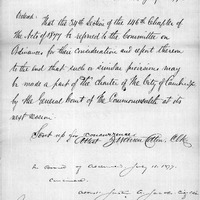 Ordered: That the 34th Section of the 146th Chapter of
the Acts of 1877 be referred to the Committee on
Ordinances for their consideration and report thereon
to the end that such or similar provisions may
be made a part of the Charter of the City of Cambridge
by the General Court of the Commonwealth at its
next session.
Sent up for concurrence.
Attest Clk.
In Board of Aldermen July 11. 1877.
Concurred.
Attest